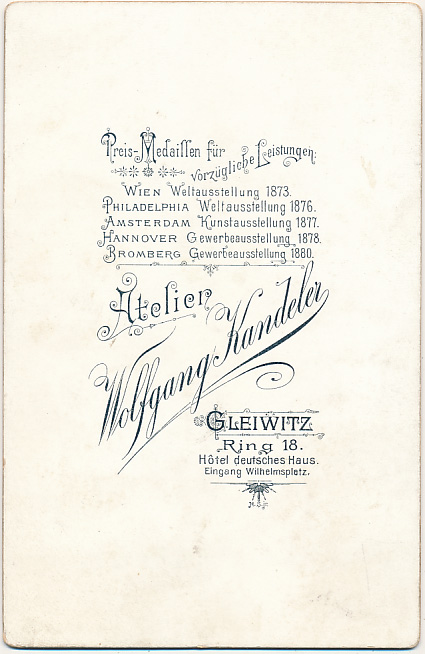 Preis-Medaillen für
vorzügliche Leistungen:
WIEN Weltausstellung 1873.
PHILADELPHIA Weltausstellung 1876.
AMSTERDAM Kunstausstellung 1877.
HANNOVER Gewerbeausstellung 1878.
BROMBERG Gewerbeausstellung 1880.
Atelier
Wolfgang Kandeler
GLEIWITZ
Ring 18.
Hôtel deutsches Haus.
Eingang Wilhelmsplatz.